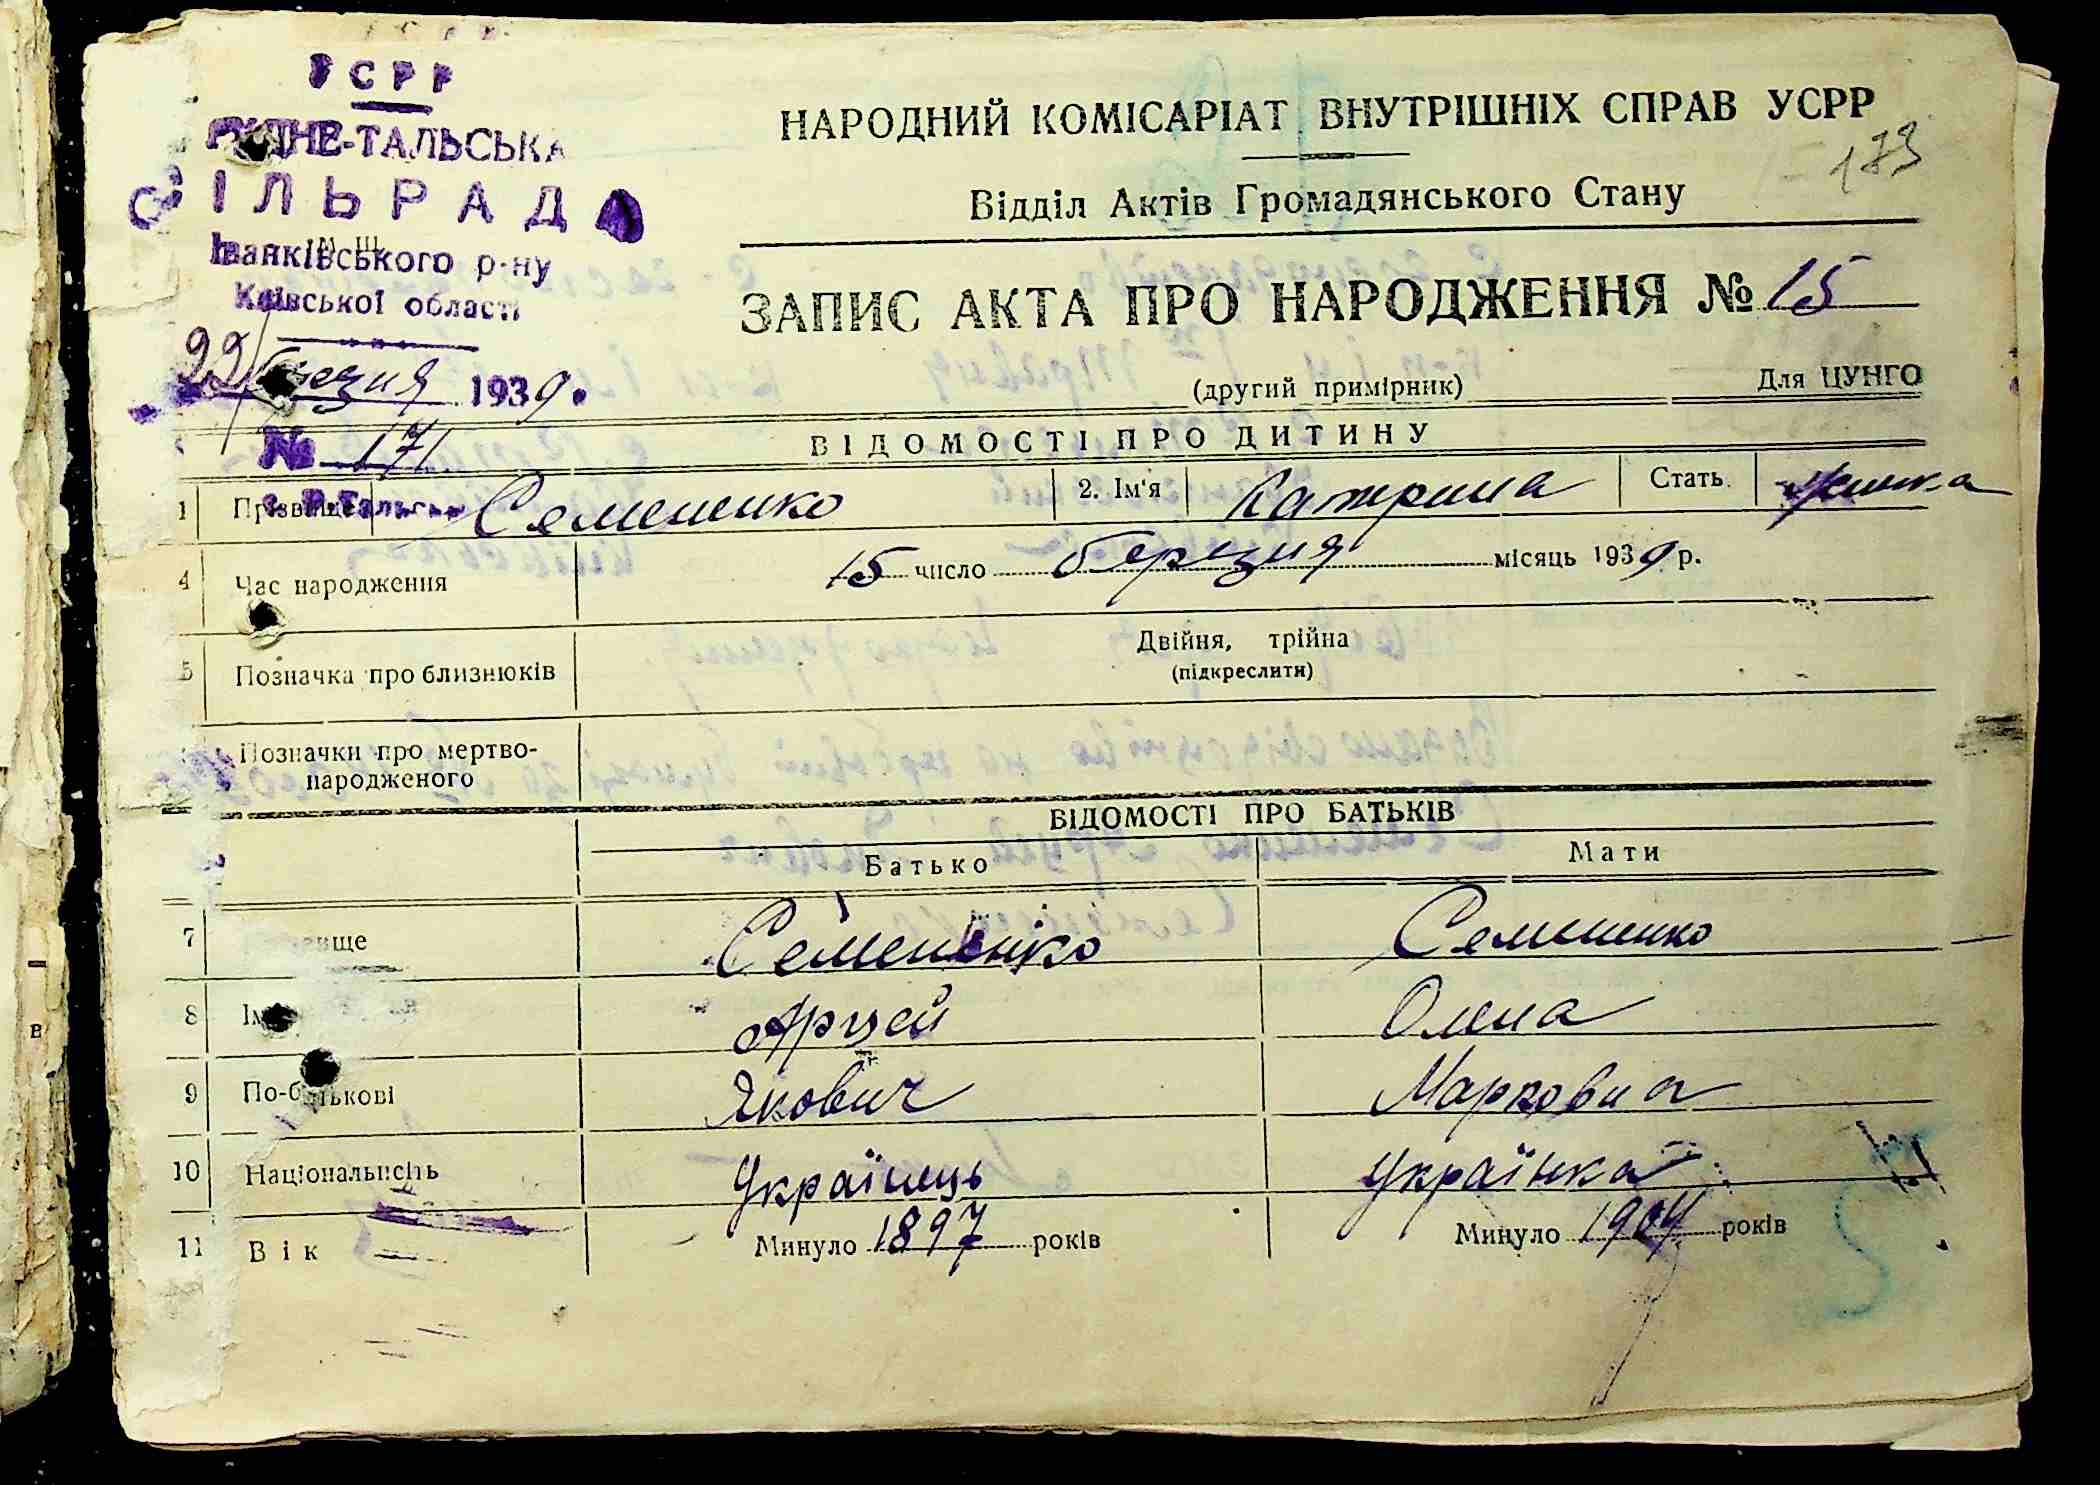 УСРР
РУДНЕ-ТАЛЬСЬКА
СІЛЬРАДА
Іванківського р-ну
Київської області
22/березня 1939.
№ 171
с. Р. Тальськ
НАРОДНИЙ КОМІСАРІАТ ВНУТРІШНІХ СПРАВ УСРР
173
Відділ Актів Громадянського Стану
ЗАПИС АКТА ПРО НАРОДЖЕННЯ № 15
(другий примірник) Для ЦУНГО
ВІДОМОСТІ ПРО ДИТИНУ
1 Прізвище Семененко 2. Ім'я Катерина Стать жінка
4 Час народження 15 число березня місяць 1939 р.
5 Позначка про близнюків Двійня, трійна
(підкреслити)
Позначки про мертво-
народженого
ВІДОМОСТІ ПРО БАТЬКІВ
Батько Мати
7 вище Семененко Семененко
8 Ім Олена
9 По-батькові Якович Марковна
10 Національність Українець Українка
11 Вік Минуло 1897 років Минуло 1904 років